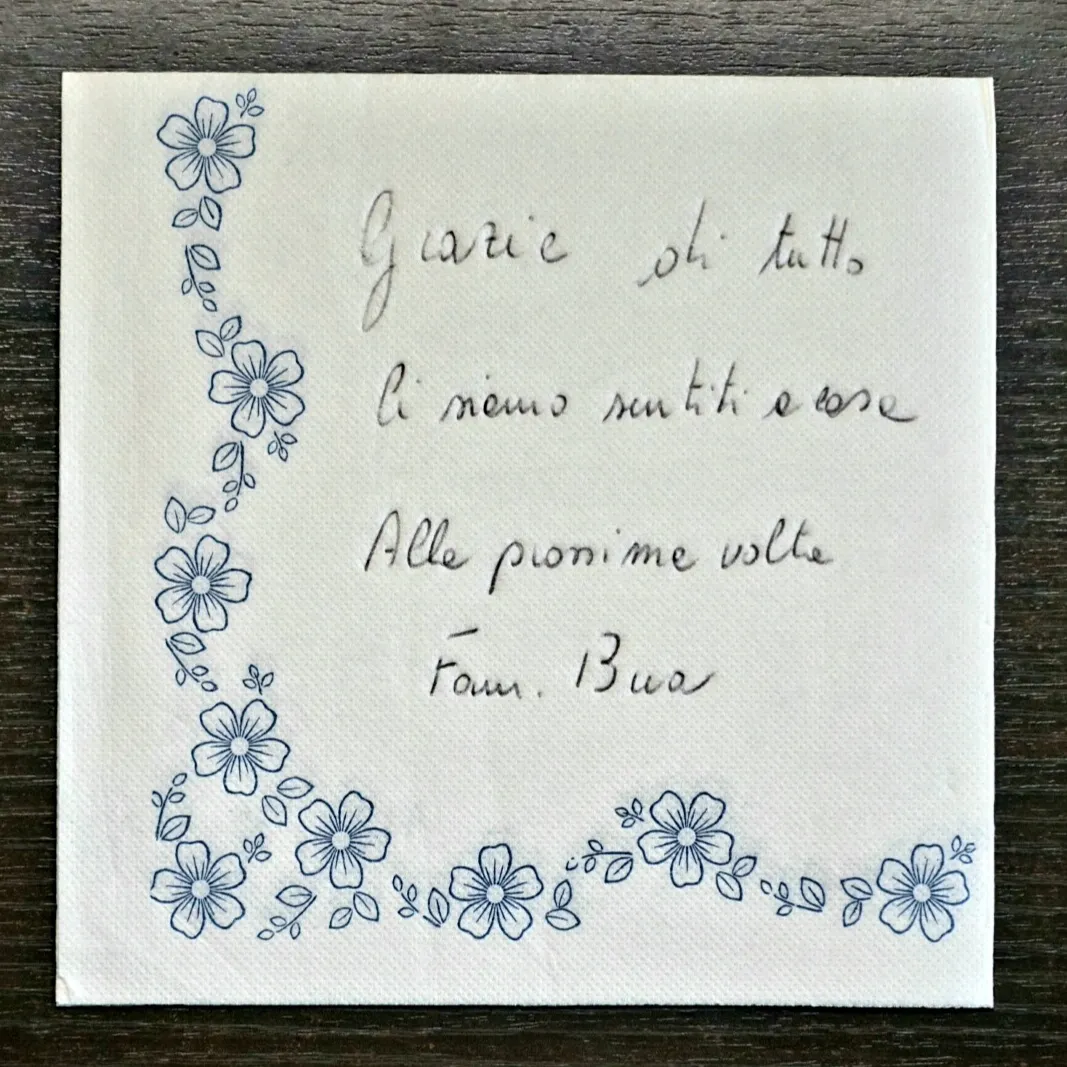 Grazie di tutto
Ci siamo sentiti a casa
Alla prossima volta
Fam. Bua